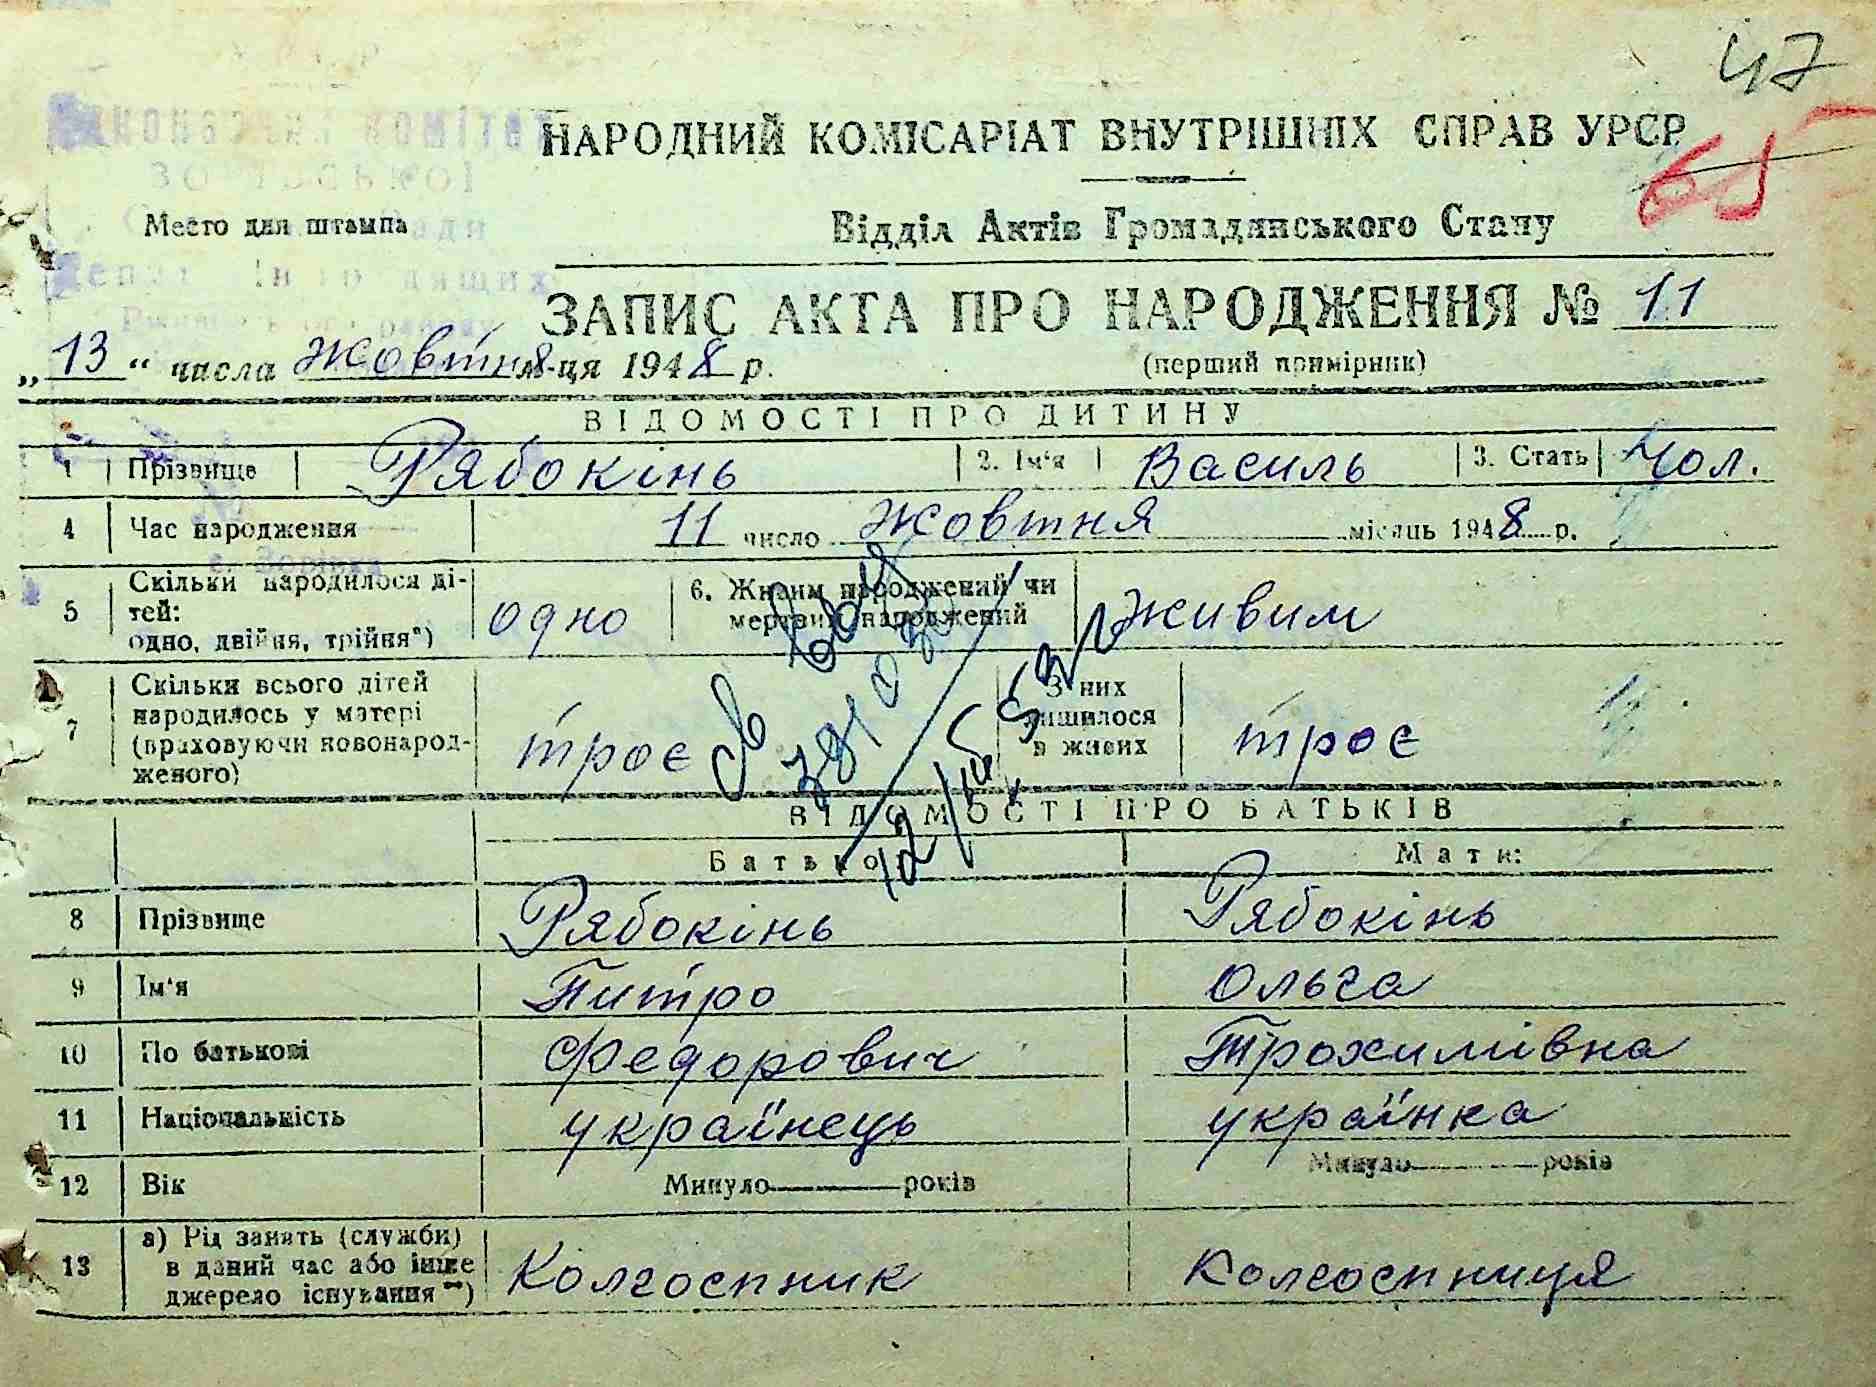 47
НАРОДНИЙ КОМІСАРІАТ ВНУТРІШНІХ СПРАВ УРСР
65
комітет
Место для штампа
Відділ Актів Громадянського Стану
ЗАПИС АКТА ПРО НАРОДЖЕННЯ № 11
„13“ числа жовтня м-ця 1948 р.
(перший примірник)
ВІДОМОСТІ ПРО ДИТИНУ
1 Прізвище Рябокінь 2. Ім'я Василь 3. Стать Чол.
4 Час народження 11 число жовтня місяць 1948 р.
с. Зорівка
5 Скільки народилося ді-
тей:
одно, двійня, трійня*)
одно
6. Живим народжений чи
мертвим народжений
живим
7 Скільки всього дітей
народилось у матері
(враховуючи новонарод-
женого)
троє
З них
лишилося
в живих
троє
ВІДОМОСТІ ПРО БАТЬКІВ
Батько: Мати:
8 Прізвище Рябокінь Рябокінь
9 Ім'я Питро Ольга
10 По батькові Федорович Трохимівна
11 Національність українець українка
12 Вік Минуло років Минуло років
13 а) Рід занять (служби)
в даний час або інше
джерело існування**)
Колгоспник колгоспниця